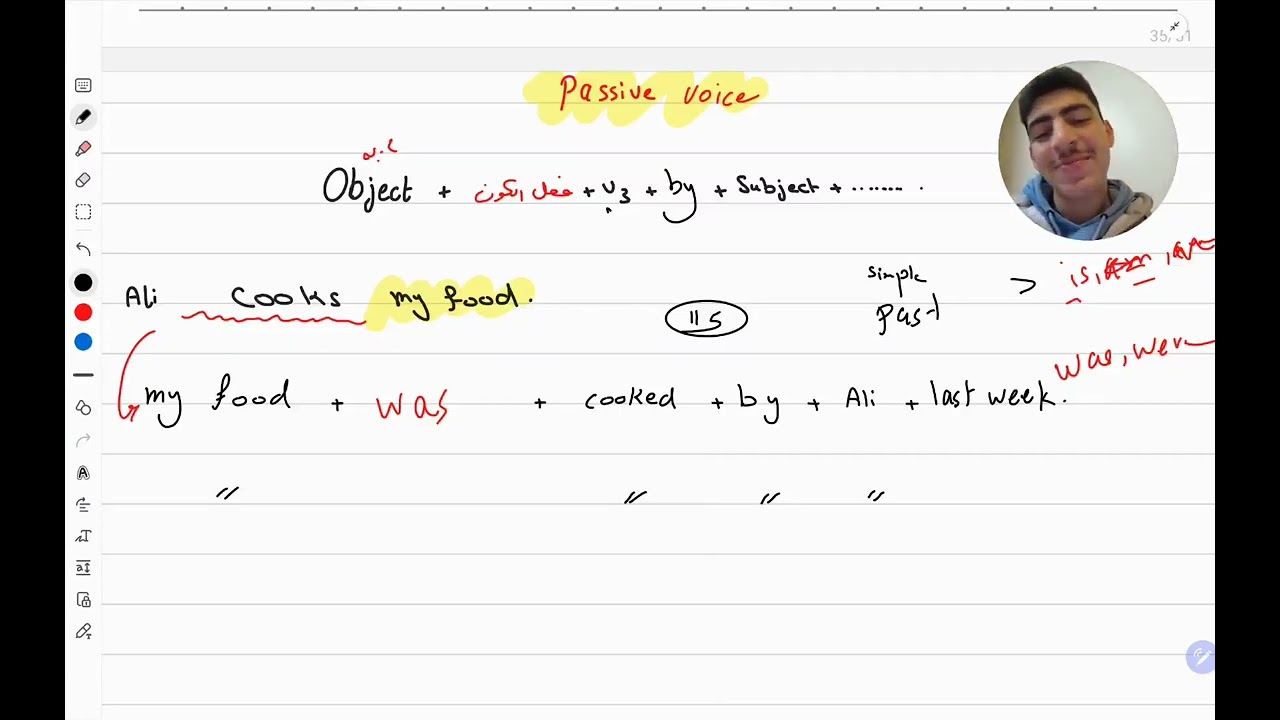 Passive voice
Object + فعل الكون + v3 + by + Subject + ........ .
Ali cooks my food.
simple past > is, am, are
was, were
my food + was + cooked + by + Ali + last week.
" " " "